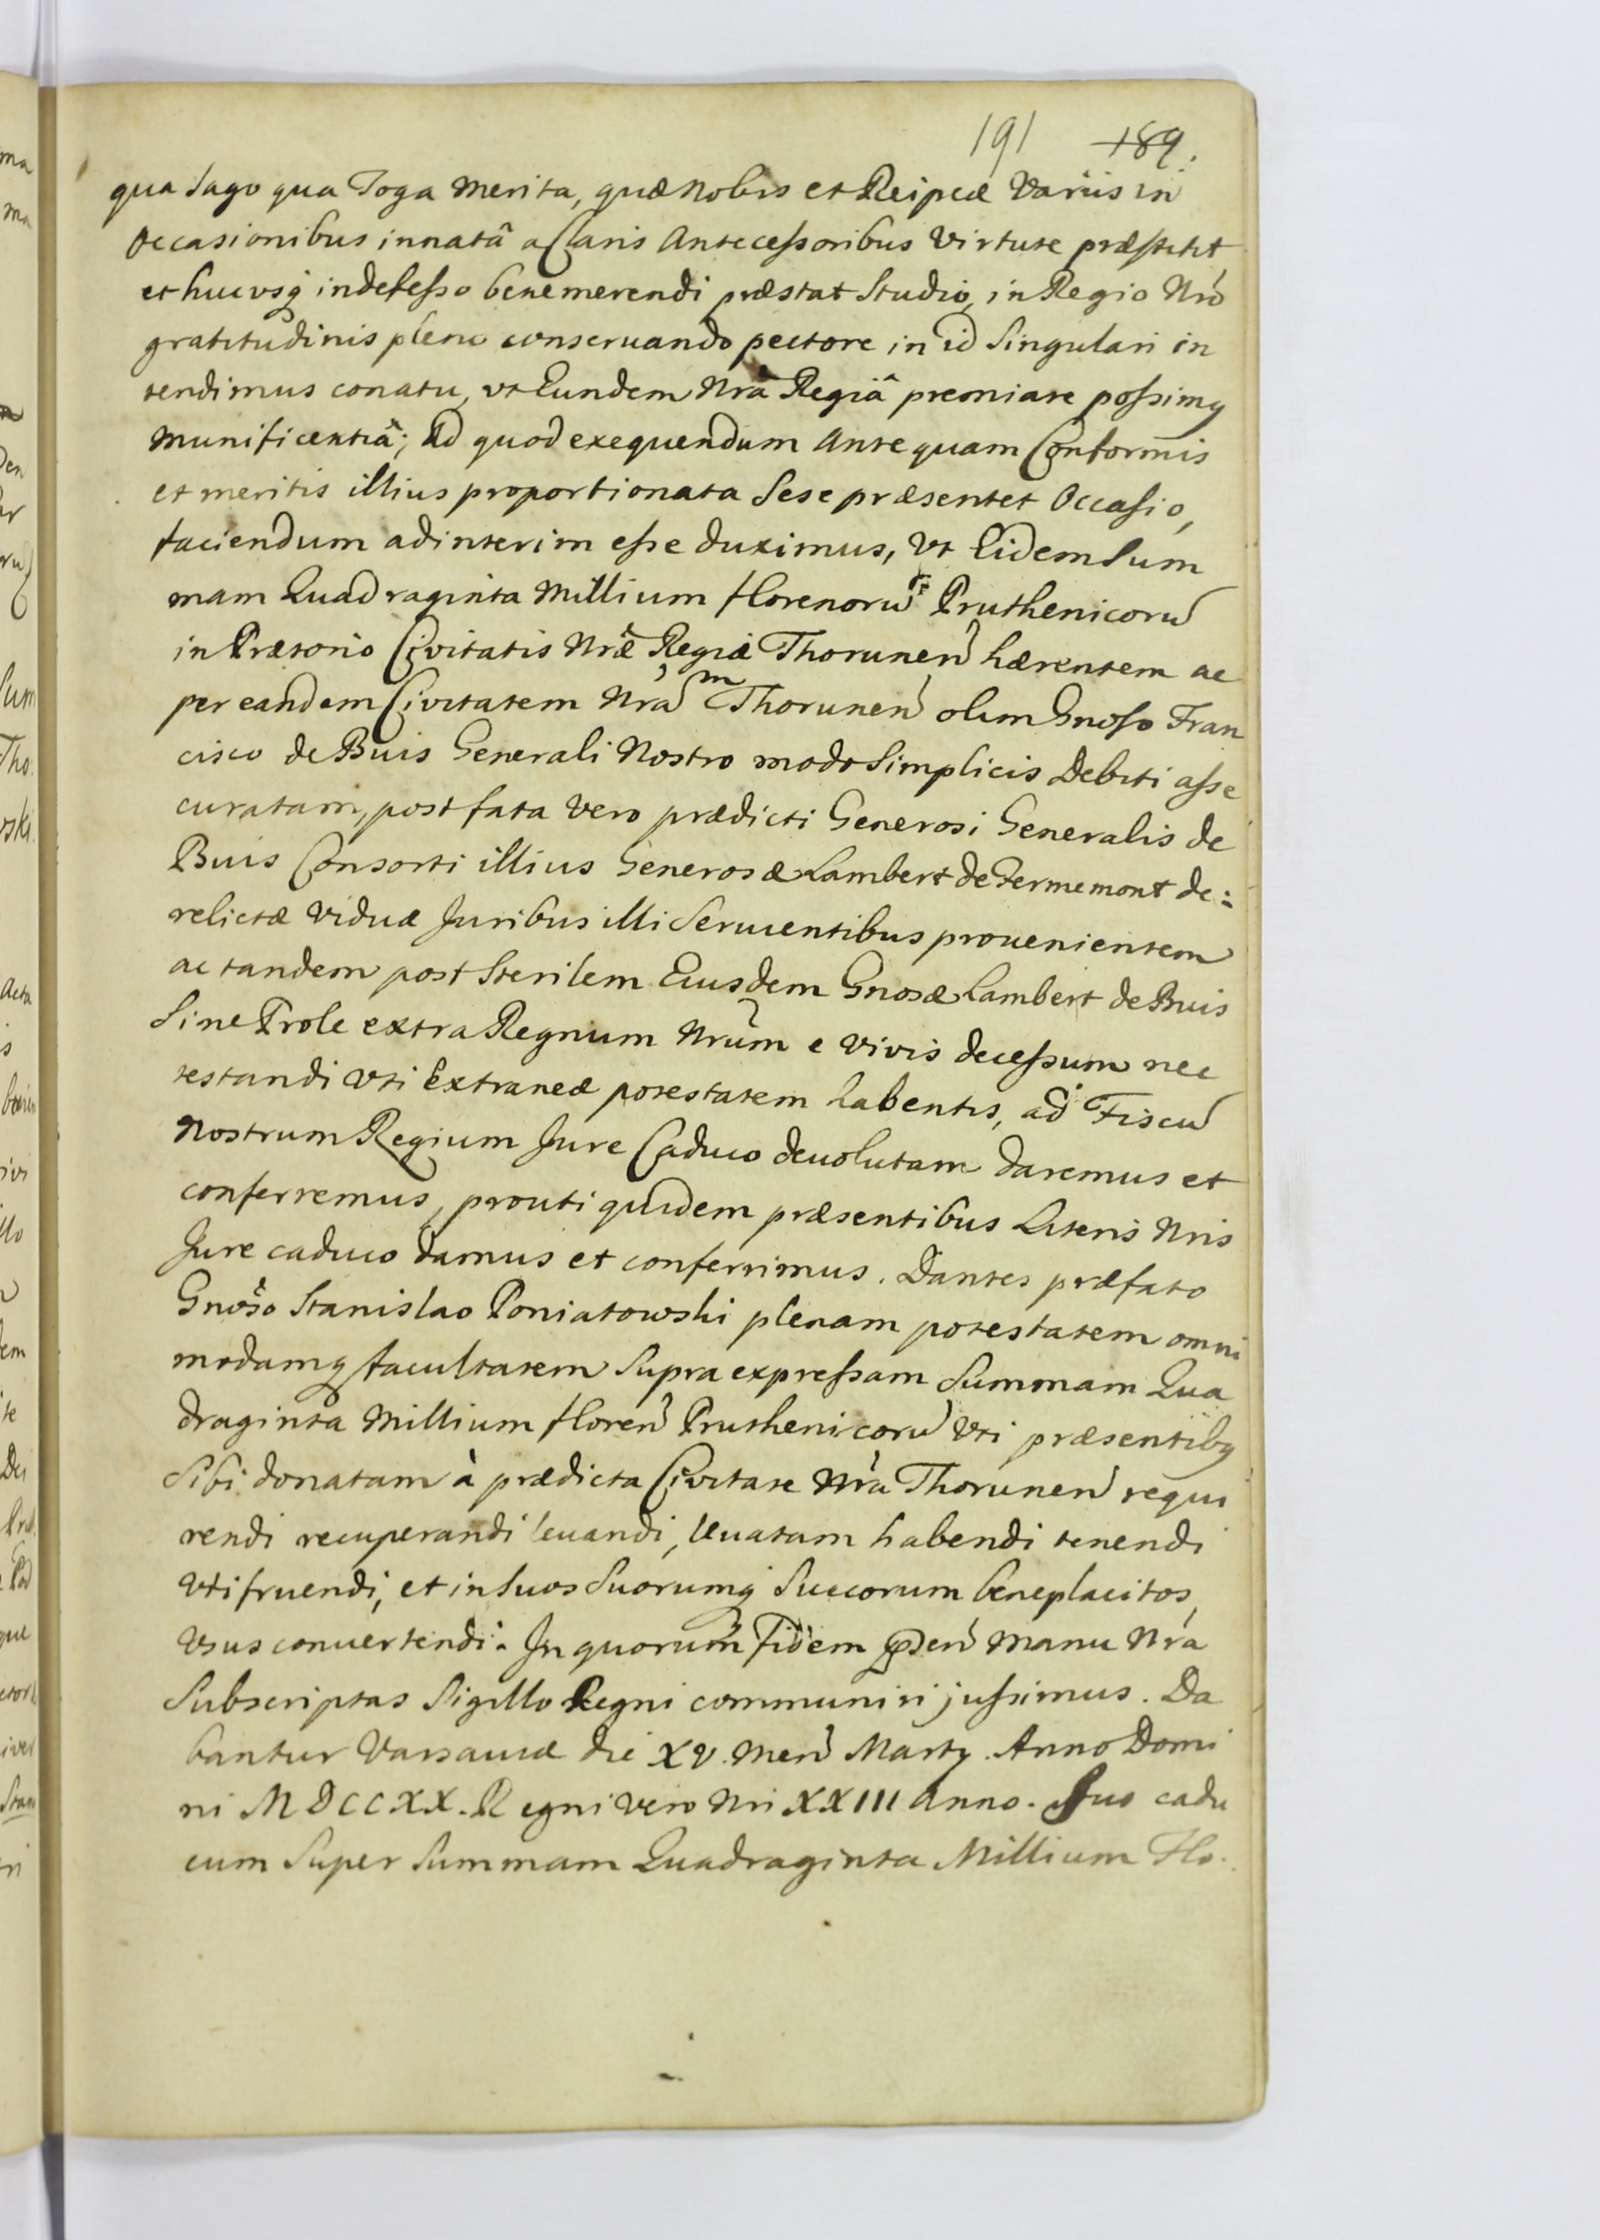 191 189.
qua Sago qua Toga merita, quæ nobis et Reipcæ Variis in
Occasionibus innatâ a Claris Antecessoribus Virtute præstitit
et hucusq indefesso benemerendi præstat Studio, in Regio Nro
gratitudinis pleno conseruando pectore in id Singulari in
tendimus conatu, vt Eundem Nrâ Regiâ premiare possimq
Munificentiâ; Ad quod exequendum Antequam Conformis
et meritis illius proportionata Sese præsentet Occasio,
faciendum ad interim esse duximus, Vt Eidem Sum
mam Quadraginta Millium florenorũ Pruthenicorũ
in Prætorio Civitatis Nræ Regiæ Thorunen hærentem ac
per eandem Civitatem Nram Thorunen olim Gnoso Fran
cisco de Buis Generali Nostro modo Simplicis Debiti asse
curatam, post fata Vero prædicti Generosi Generalis de
Buis Consorti illius Generosæ Lambert de Fermemont de=
relictæ Viduæ Juribus illi Seruientibus prouenientem
ac tandem post Sterilem Eiusdem Gnosæ Lambert de Buis
Sine Prole extra Regnum Nrum e Vivis decessum nec
testandi Vti Extraneæ potestatem habentis, ad Fiscũ
Nostrum Regium Jure Caduco deuolutam daremus et
conferremus, prouti quidem præsentibus Literis Nris
Jure caduco damus et conferrimus. Dantes præfato
Gnoso Stanislao Poniatowski plenam potestatem omni
modamq facultatem Supra expressam Summam Qua
draginta Millium floren Pruthenicorũ Vti præsentibq
Sibi donatam à prædicta Civitate Nra Thorunen requi
rendi recuperandi leuandi, leuatam habendi tenendi
Vtifruendi, et in Suos Suorumq Succorum beneplacitos,
Vsus conuertendi. In quorum Fidem pden Manu Nra
Subscriptas Sigillo Regni communiri jussimus. Da
bantur Varsauiæ die XV. Men Marty. Anno Domi
ni MDCCXX. Regni Vero Nri XXIII Anno. Jus cadu
cum Super Summam Quadraginta Millium Flo.